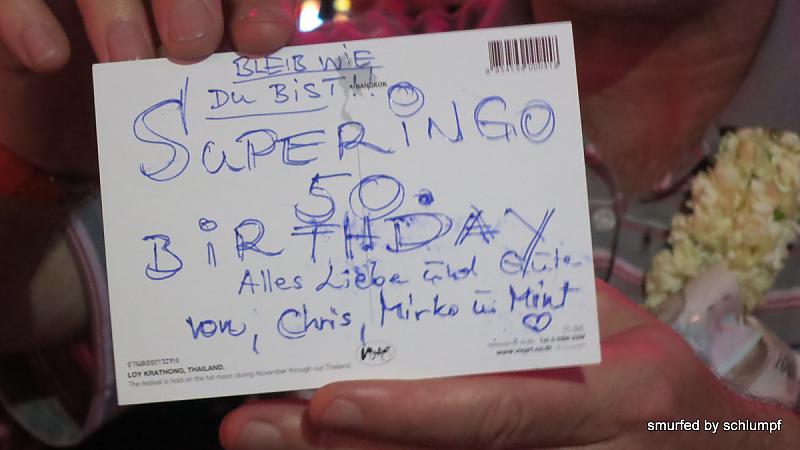 BLEIB WIE
DU BIST!!
BANGKOK
SUPERINGO
50.
BIRTHDAY
Alles Liebe und Gute
von, Chris, Mirko u. Mint
งานลอยกระทง
LOY KRATHONG, THAILAND.
The festival is hold on the full moon during November through out Thailand.
smurfed by schlumpf